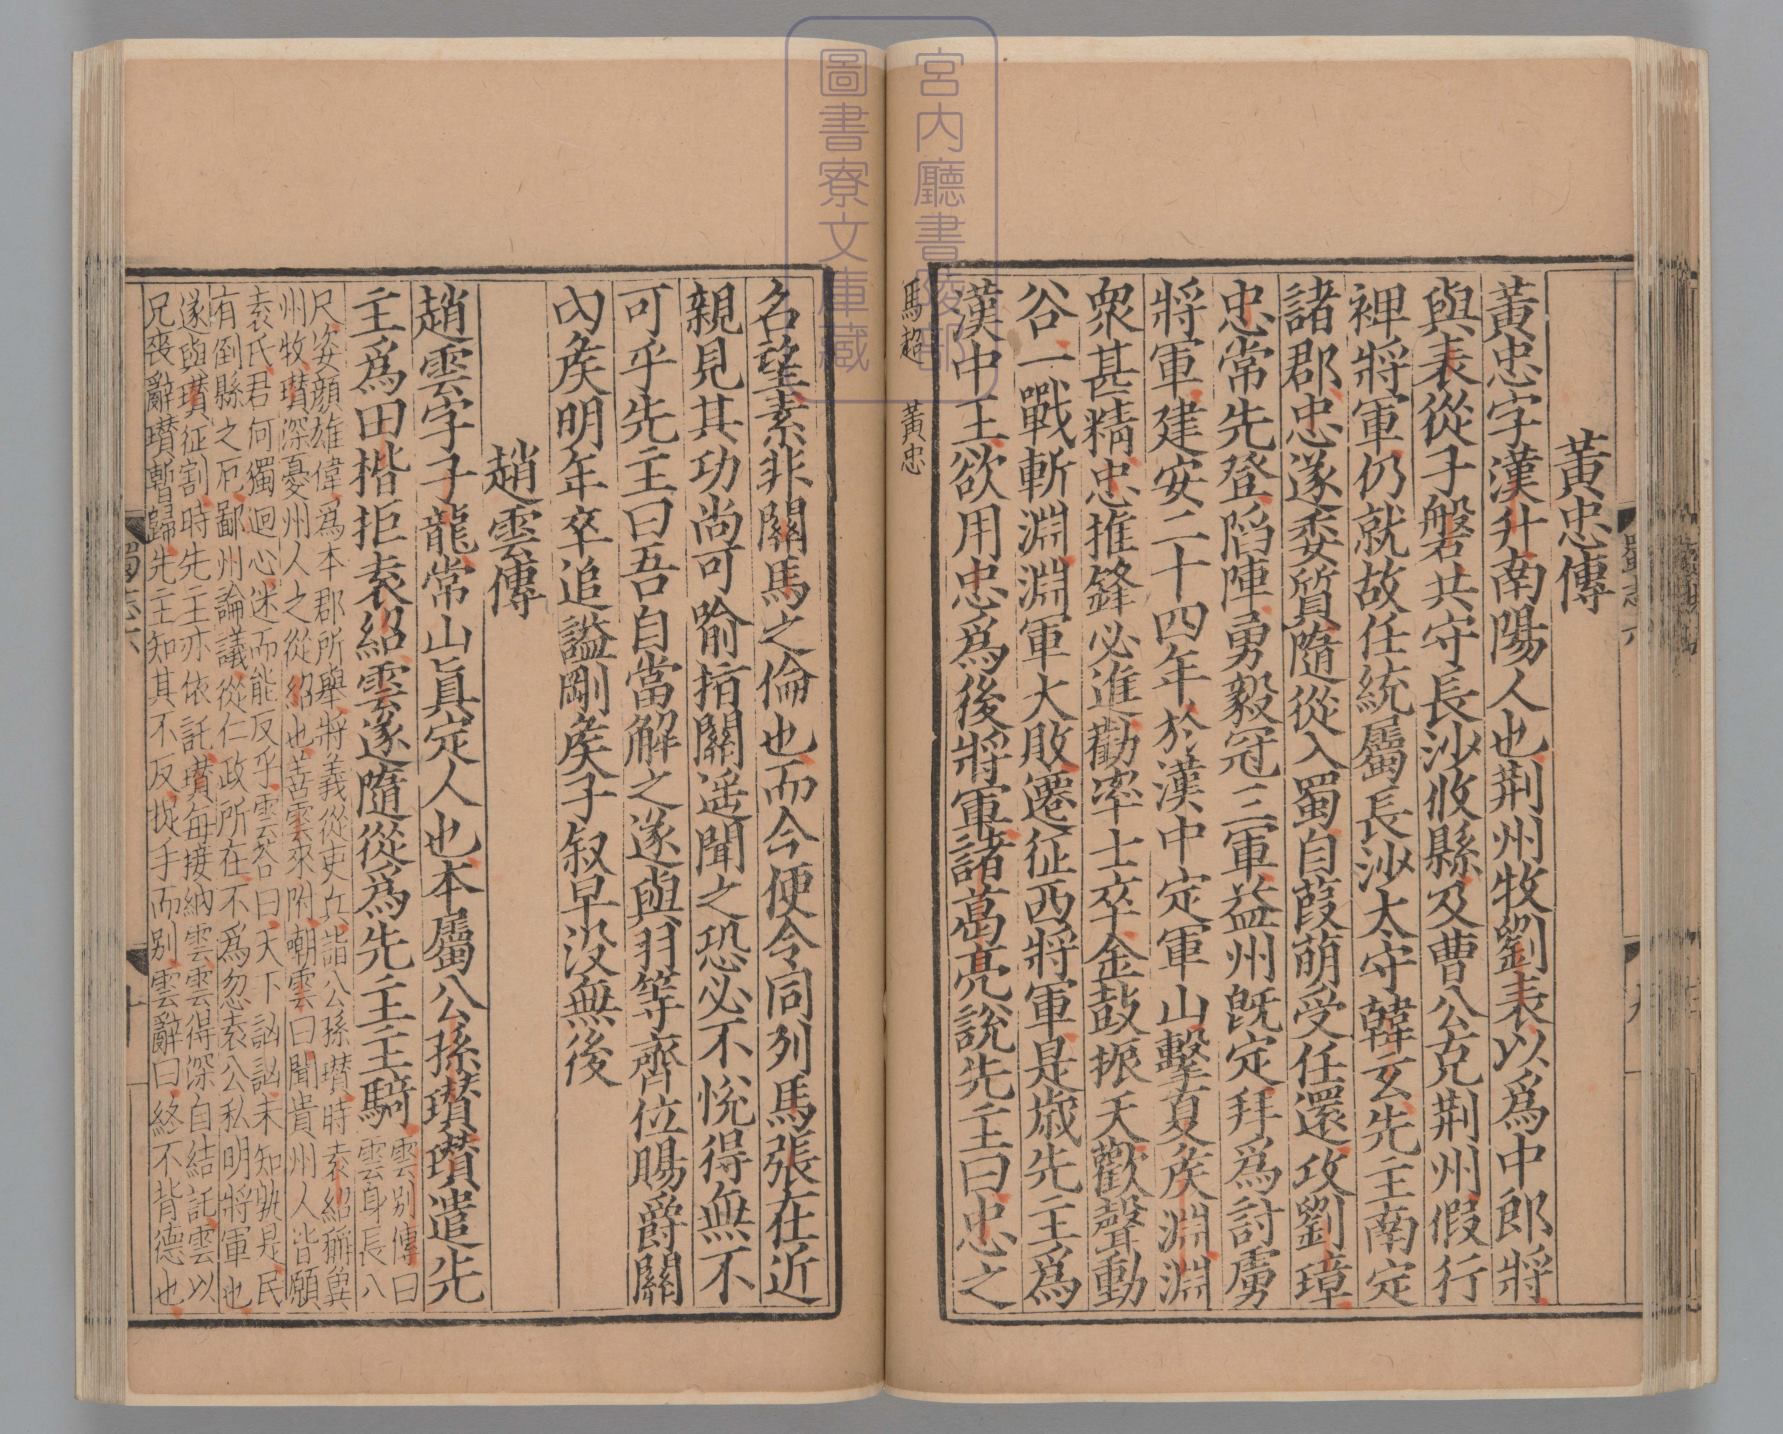 黃忠傳
黃忠字漢升南陽人也荆州牧劉表以爲中郎將
與表從子磐共守長沙攸縣及曹公克荆州假行
裨將軍仍就故任統屬長沙太守韓玄先主南定
諸郡忠遂委質隨從入蜀自葭萌受任還攻劉璋
忠常先登陷陣勇毅冠三軍益州旣定拜爲討虜
將軍建安二十四年於漢中定軍山擊夏矦淵淵
衆甚精忠推鋒必進勸率士卒金鼓振天歡聲動
谷一戰斬淵淵軍大敗遷征西將軍是歲先主爲
漢中王欲用忠爲後將軍諸葛亮說先主曰忠之
馬超 黃忠
名望素非關馬之倫也而今便令同列馬張在近
親見其功尚可喻指關遥聞之恐必不悅得無不
可乎先主曰吾自當解之遂與羽等齊位賜爵關
內矦明年卒追謚剛矦子叙早没無後
趙雲傳
趙雲字子龍常山真定人也本屬公孫瓚瓚遣先
主爲田楷拒袁紹雲遂隨從爲先主主騎
雲别傳曰
雲身長八
尺姿顔雄偉爲本郡所舉將義從吏兵詣公孫瓚時袁紹稱兾
州牧瓚深憂州人之從紹也善雲來附嘲雲曰聞貴州人皆願
袁氏君何獨迴心迷而能反乎雲荅曰天下訩訩未知孰是民
有倒縣之厄鄙州論議從仁政所在不爲忽袁公私明將軍也
遂與瓚征割時先主亦依託瓚每接納雲雲得深自結託雲以
兄喪辭瓚暫歸先主知其不反捉手而别雲辭曰終不背德也
蜀志六
十
宮内廳書陵部
圖書寮文庫藏